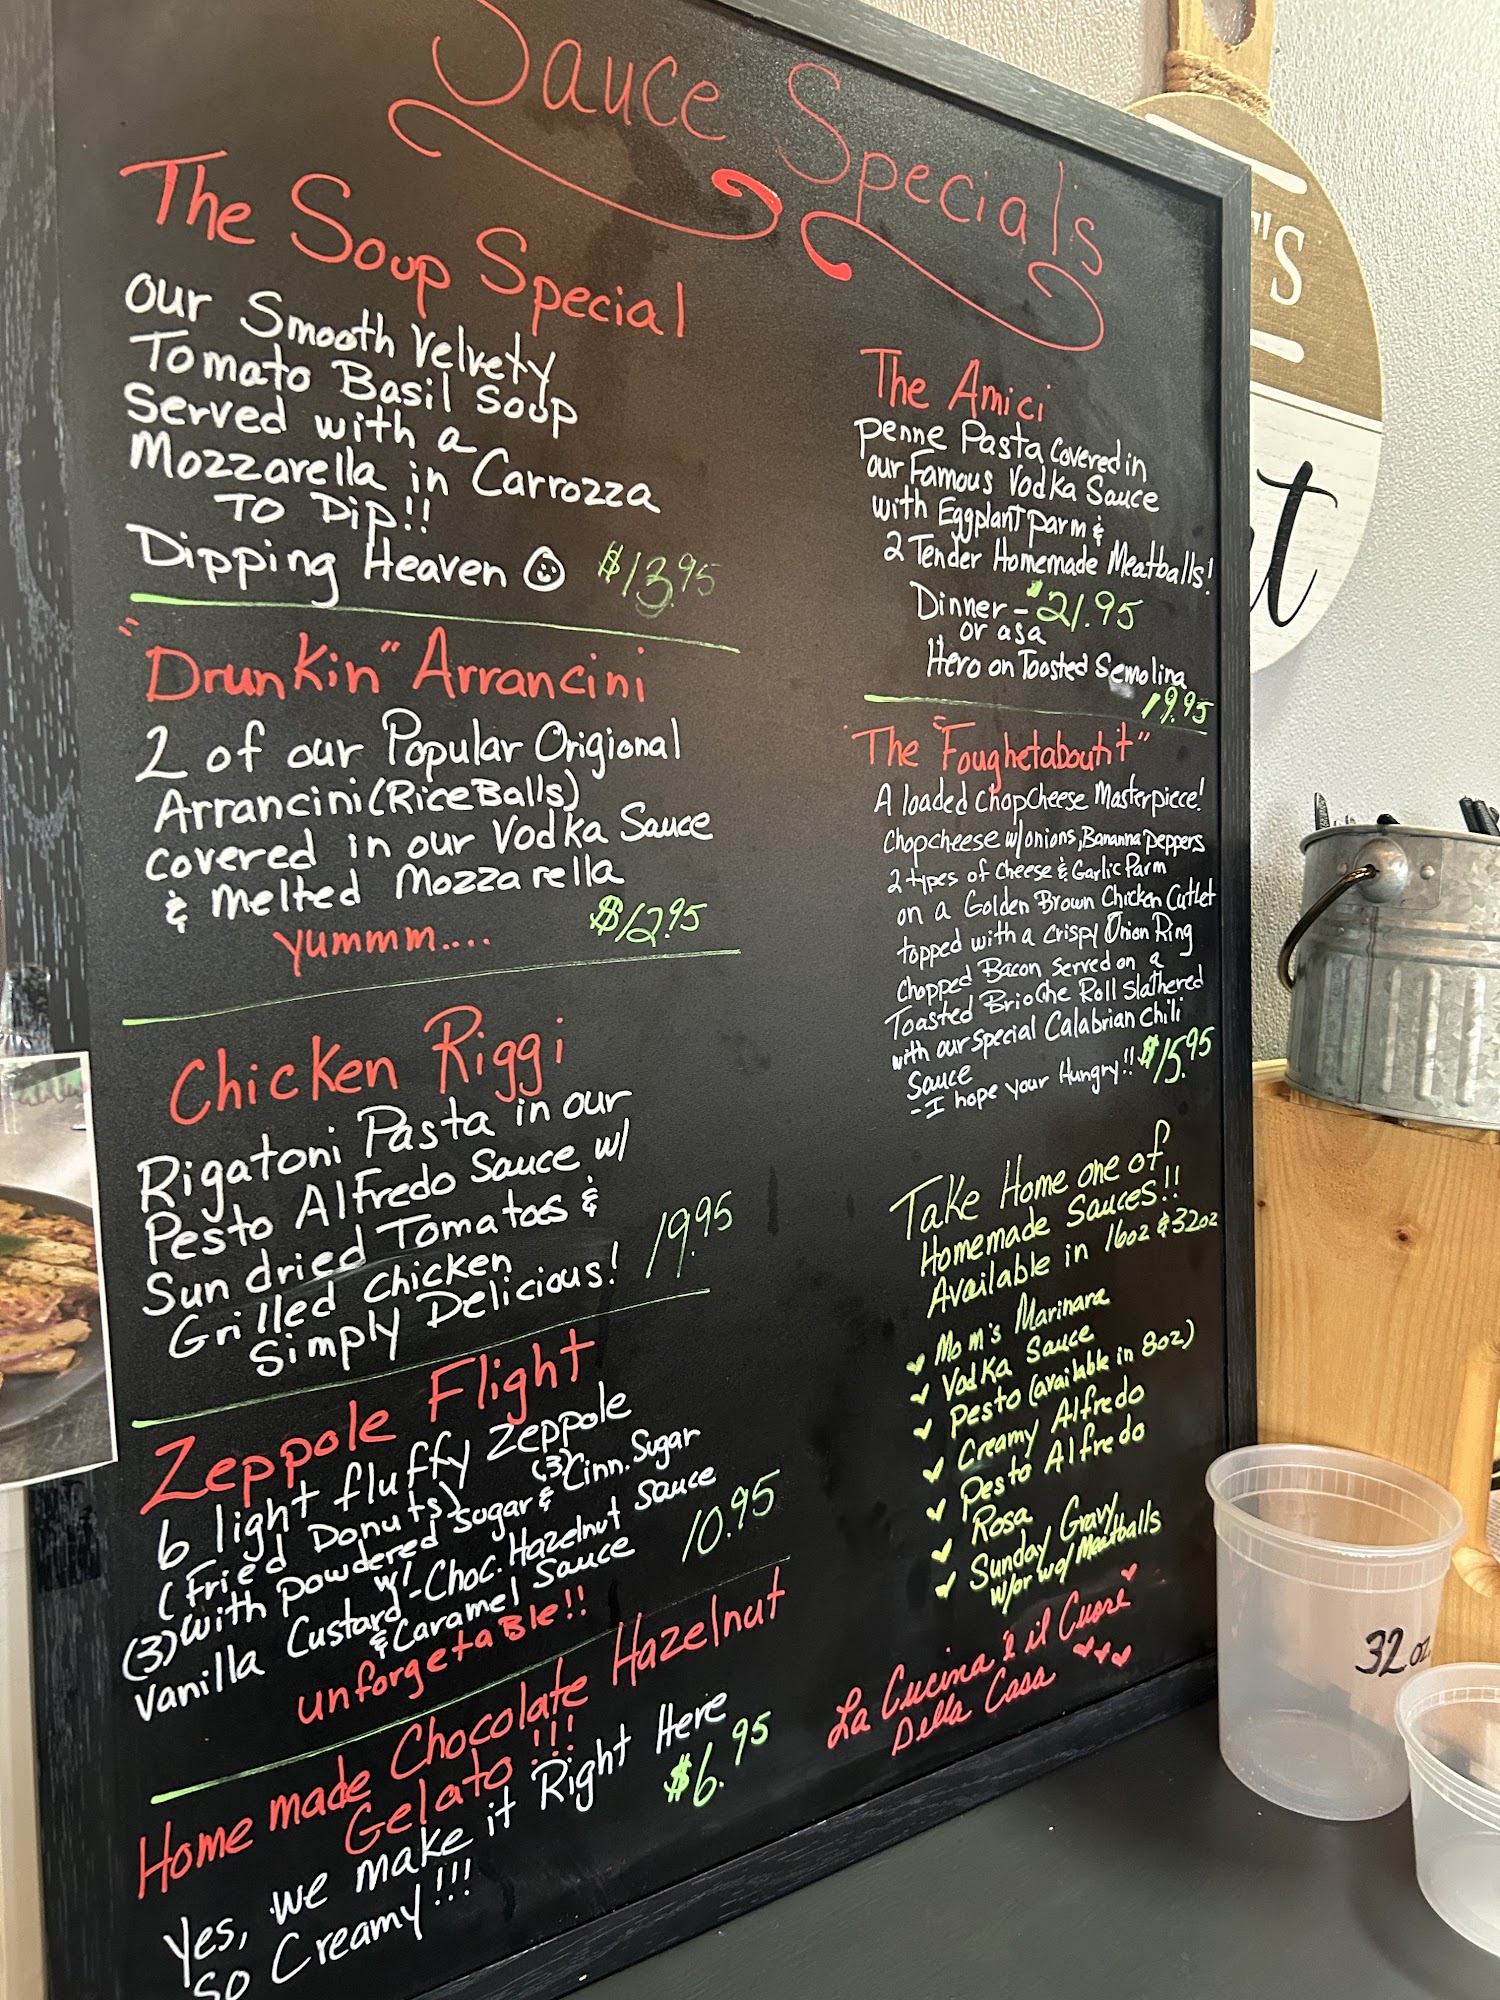 Sauce Specials
The Soup Special
our Smooth Velvety
Tomato Basil Soup
Served with a
Mozzarella in Carrozza
To Dip!!
Dipping Heaven $13.95
"Drunkin" Arrancini
2 of our Popular Origional
Arrancini (Rice Balls)
covered in our Vodka Sauce
& Melted Mozzarella
yummm.... $12.95
Chicken Riggi
Rigatoni Pasta in our
Pesto Alfredo Sauce w/
Sun dried Tomatoes &
Grilled Chicken
Simply Delicious! 19.95
Zeppole Flight
6 light fluffy Zeppole
(Fried Donuts)
(3) with powdered sugar & (3) Cinn. Sugar
w/
Vanilla Custard - Choc. Hazelnut Sauce
& Caramel Sauce 10.95
unforgetaBle!!
Homemade Chocolate Hazelnut
Gelato!!!
Yes, we make it Right Here
So Creamy!!! $6.95
The Amici
Penne Pasta covered in
our Famous Vodka Sauce
with Eggplant parm &
2 Tender Homemade Meatballs!
Dinner - $21.95
or as a
Hero on Toasted Semolina
19.95
"The "Foughetaboutit"
A loaded ChopCheese Masterpiece!
Chopcheese w/onions, Bananna peppers
2 types of Cheese & Garlic Parm
on a Golden Brown Chicken Cutlet
topped with a crispy Onion Ring
Chopped Bacon served on a
Toasted Brioche Roll Slathered
with our special Calabrian Chili
Sauce
- I hope your Hungry!! $15.95
Take Home one of
Homemade Sauces!!
Available in 16oz & 32oz
Mom's Marinara
Vodka Sauce
Pesto (available in 8oz)
Creamy Alfredo
Pesto Alfredo
Rosa
Sunday Gravy
w/or w/o Meatballs
La Cucina è il Cuore
Della Casa
'S
32 oz.